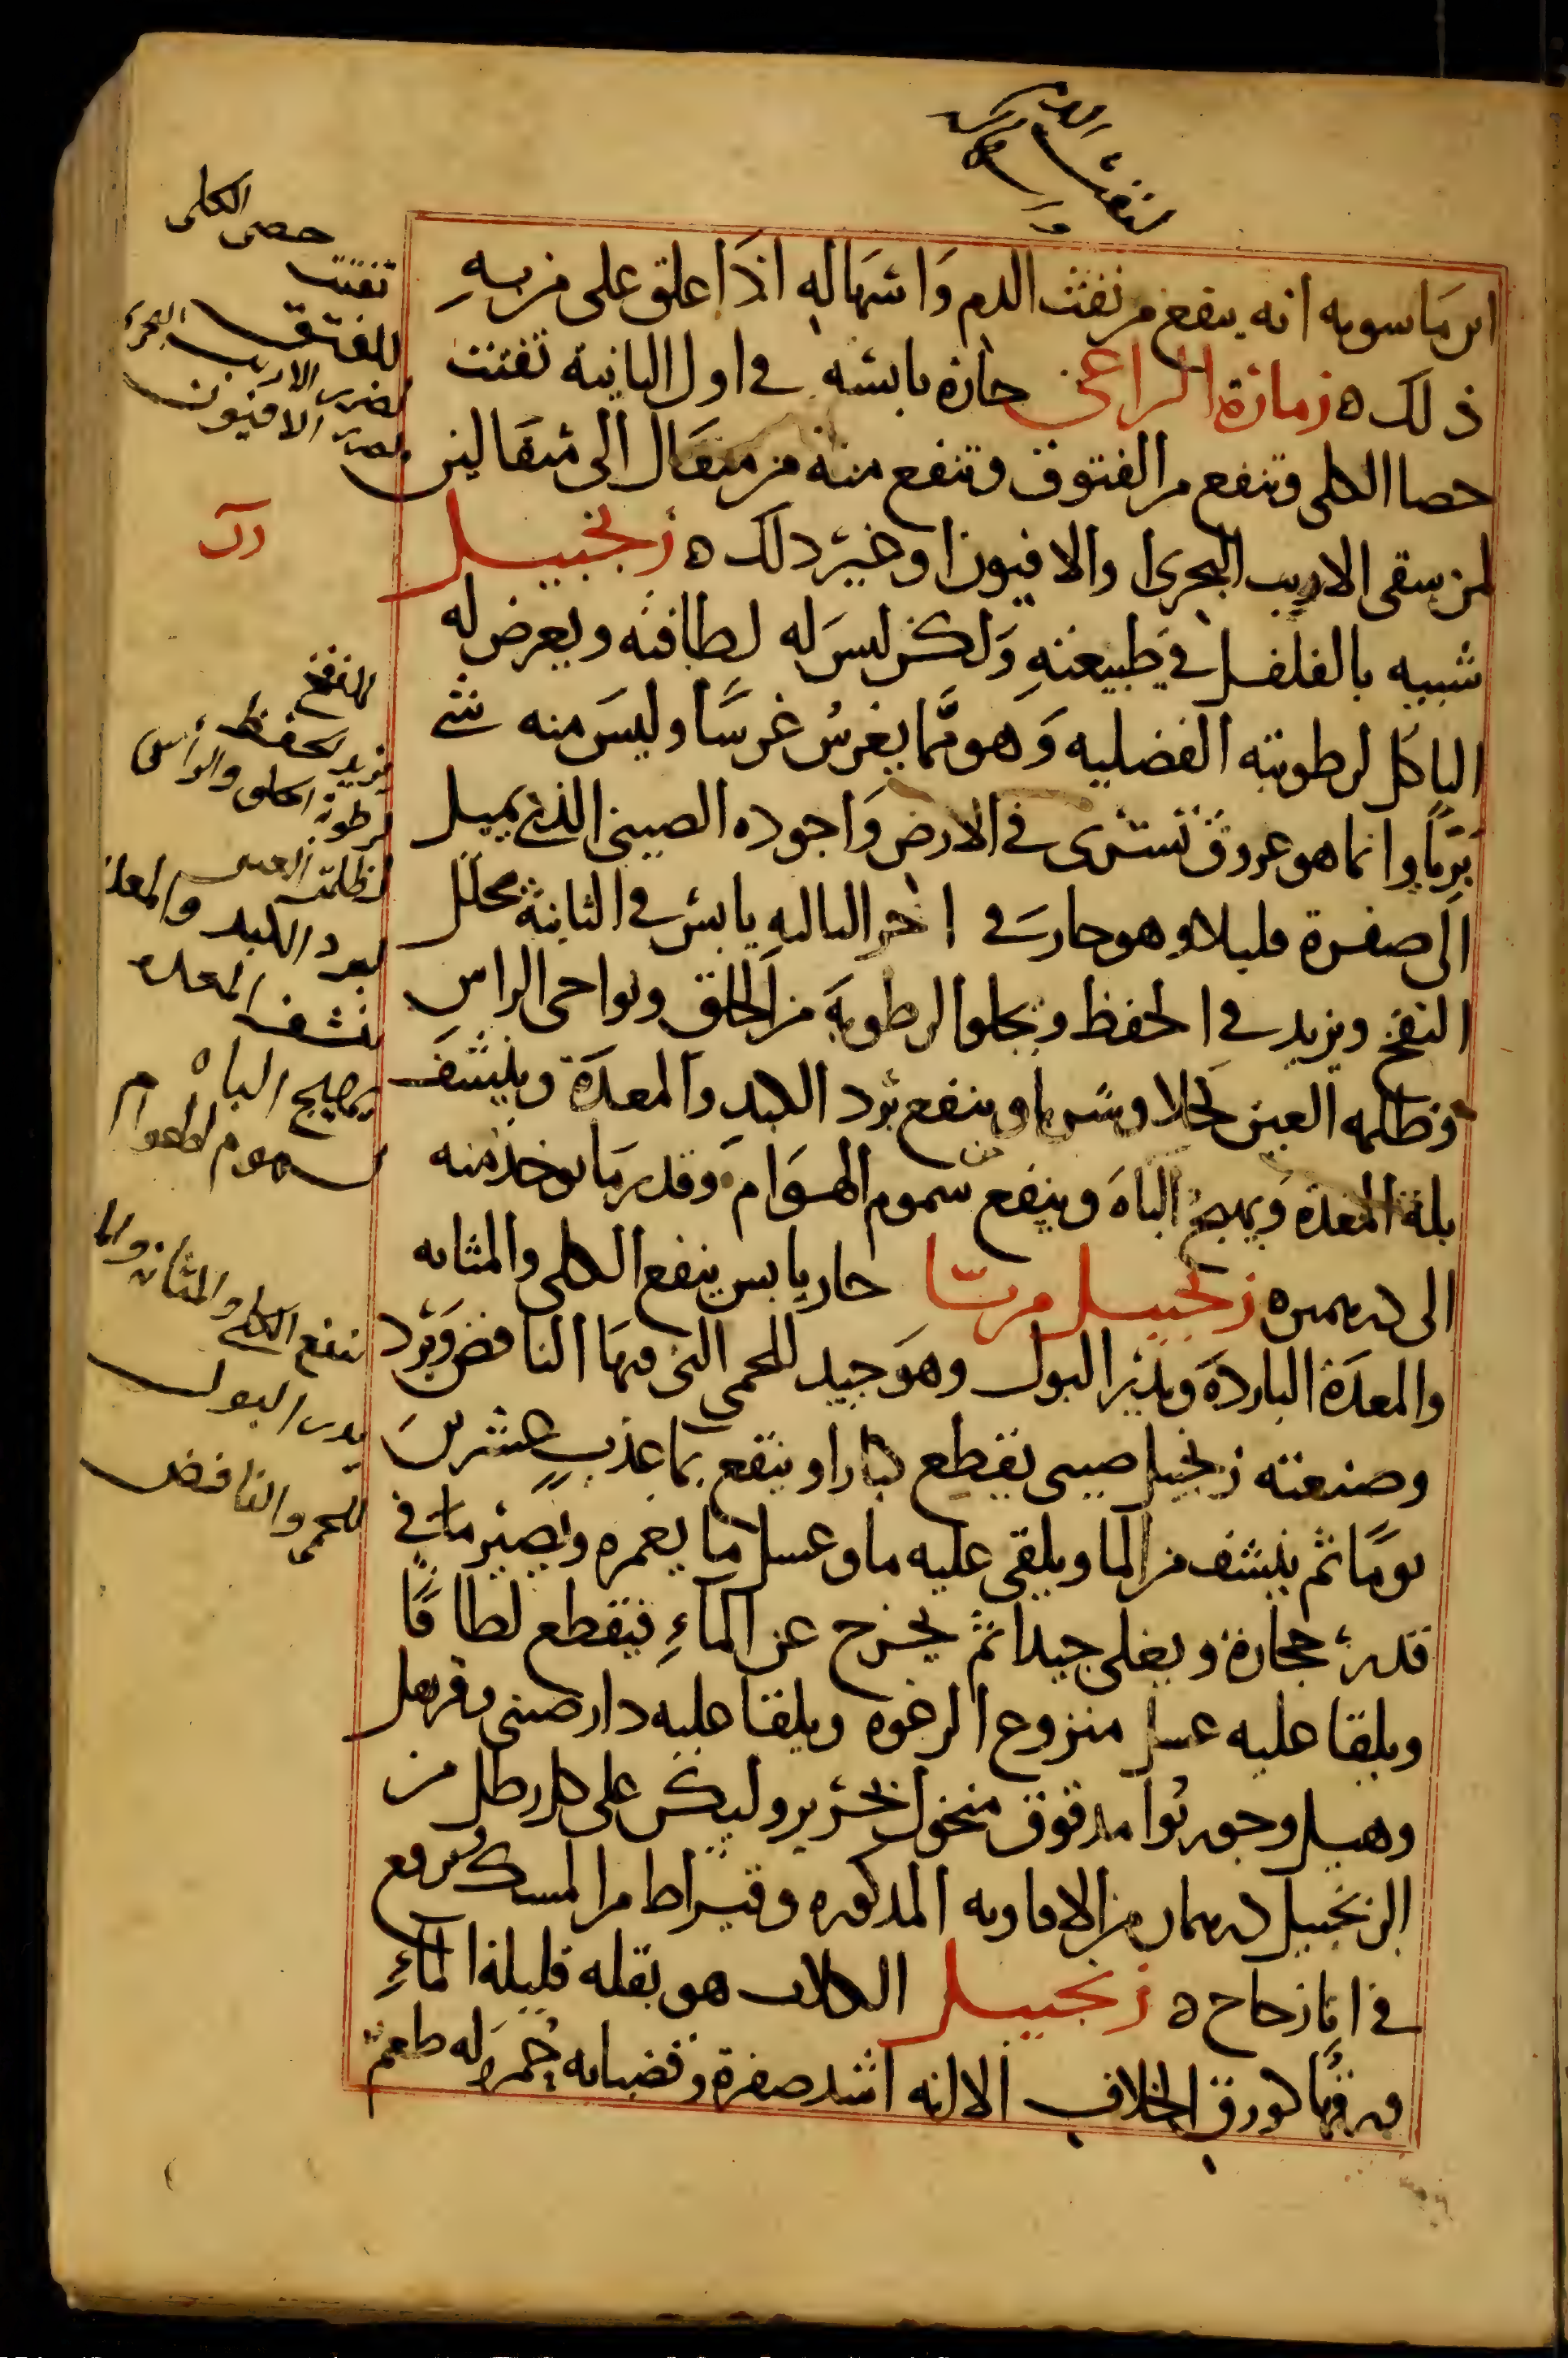 لنفث الدم
ابن ماسويه انه ينفع من نفث الدم وَاسْهاله اذا علق على من بهِ
ذلك ه زمارة الراعى حارة يابسه في اول الثانية تفتت
حصا الكلى وتنفع من الفتوق وتنفع منه من مثقال الى مثقالين
لمن سقى الارنب البحرى او الافيون او غير ذلك ه زنجبيل
شبيه بالفلفل في طبيعته وَلكن ليسَ له لطافته ويعرض له
التاكل لرطوبته الفضليه وَهو ممَّا يغرسُ غرسًا وليسَ منه شئ
برّيا وانما هو عروق تسرى في الارض وَاجوده الصينى الذي يميل
الى صفرة قليلا وهو حار في اخر الثالثه يابس في الثانية محلل
النفخ ويزيد في الحفظ ويجلوا الرطوبة من الحلق ونواحى الراس
وظلمه العين كحلا وشربا وينفع برد الكبد والمعدَة وينشف
بلة المعدة ويهيج الباهَ وينفع من سموم الهوَام وقدر مَا يوخذ منه
الى درهمين ه زنجبيل مربّا حار يابس ينفع الكلى والمثانه
والمعدَة الباردَة ويدر البول وهوَ جيد للحمى التى فيها النافض وَبَرد
وصنعته زنجبيل صينى يقطع كبارا وينقع بما عذبٍ عشرينَ
يومًا ثم ينشف من الما ويلقى عليه ما وعسل ما يغمره ويصير ما في
قدر حجارة ويغلى جيدا ثم يخرج عن الماءِ فيقطع لطافًا
ويلقا عليه عسل منزوع الرغوه ويلقا عليه دار صينى وقرنفل
وهيل وجوزبوا مدقوق منخول بحرير وليكن على كل رطل من
الزنجبيل درهمان من الافاويه المذكوره وقيراط من المسك ويرفع
في انا زجاج ه زنجبيل الكلاب هو بقله قليلة الماءِ
ورقها كورق الخلاف الا انه اشد صفرة وقضبانه حمر وله طعم
حصى الكلى
تفتت
للفتق
لضرر الارنب البحرى
ولضرر الافيون
للنفخ
يزيد الحفظ
لرطوبة الحلق والراس
لظلمة العين
لبرد الكبد والمعدة
تنشف المعده
يهيج الباه
لسموم الهوام
تنفع الكلى والمثانه
يدر البول
للحمى والنافض